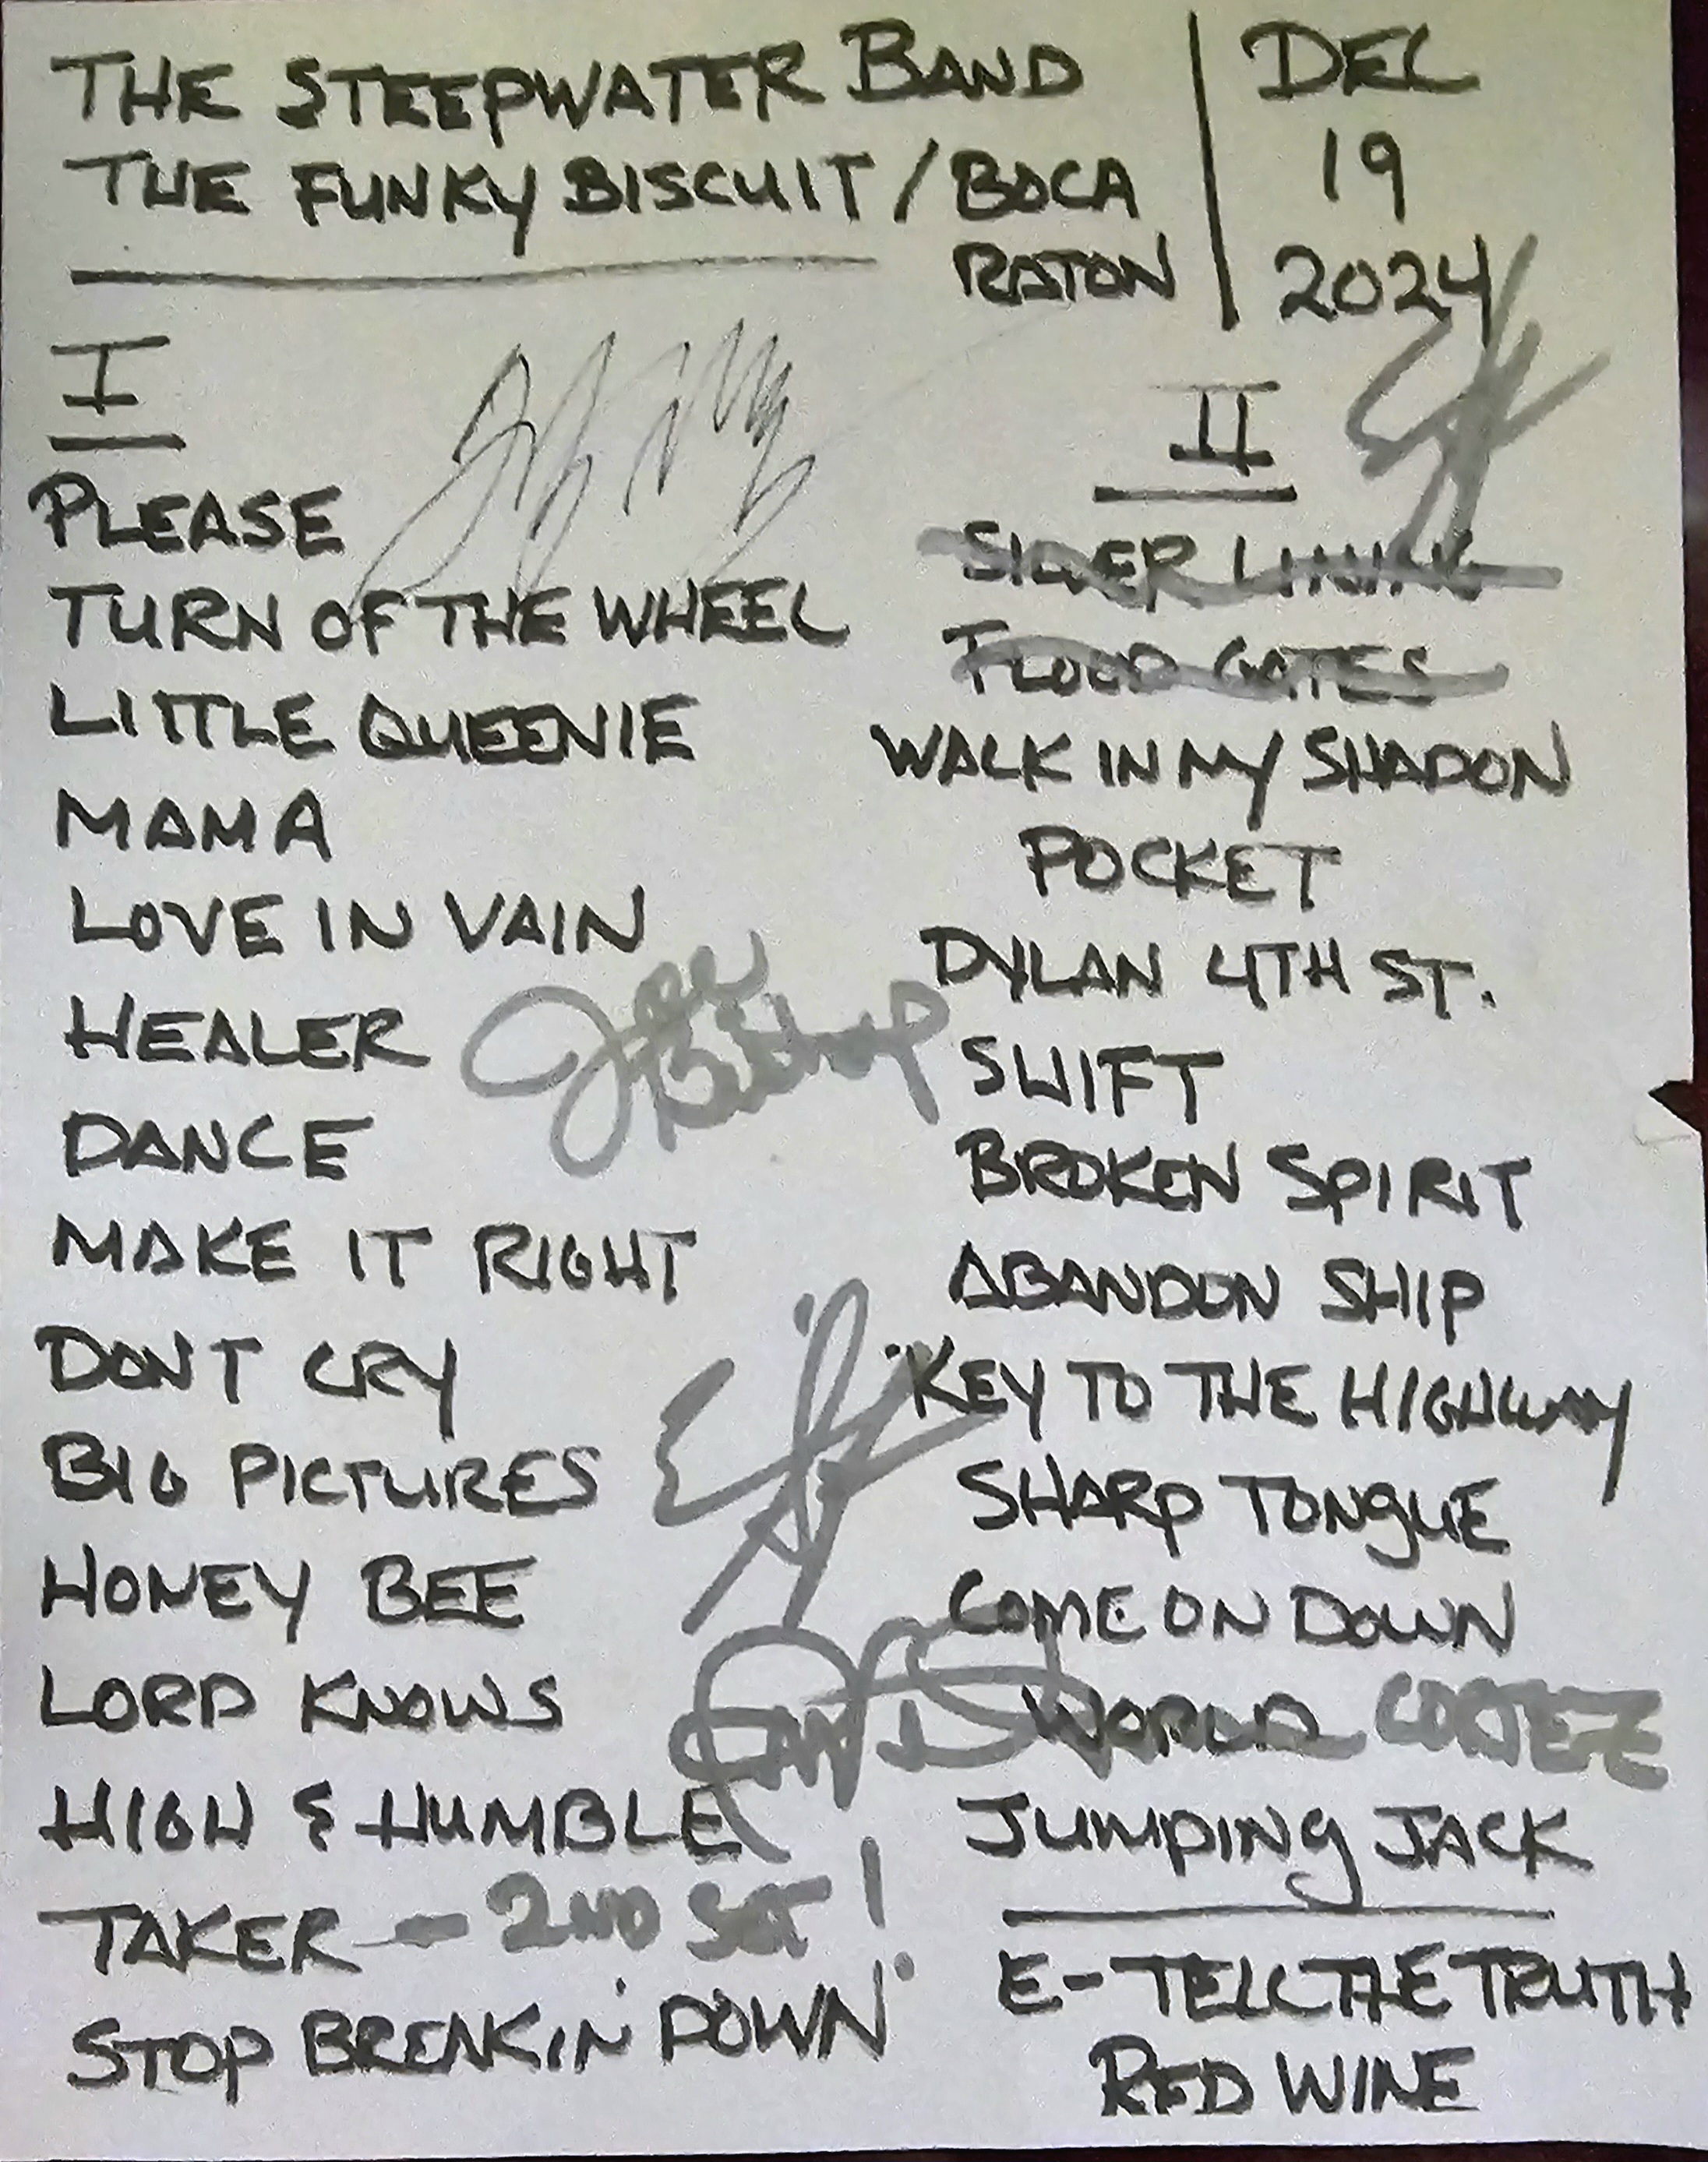 THE STEEPWATER BAND
THE FUNKY BISCUIT / BOCA
RATON
DEC
19
2024
I
PLEASE
TURN OF THE WHEEL
LITTLE QUEENIE
MAMA
LOVE IN VAIN
HEALER
DANCE
MAKE IT RIGHT
DONT CRY
BIG PICTURES
HONEY BEE
LORD KNOWS
HIGH & HUMBLE
TAKER - 2ND SET!
STOP BREAKIN' DOWN
Joe
Bishop
II
SILVER LINING
FLOOD GATES
WALK IN MY SHADOW
POCKET
DYLAN 4TH ST.
SWIFT
BROKEN SPIRIT
ABANDON SHIP
KEY TO THE HIGHWAY
SHARP TONGUE
COME ON DOWN
WORLD CORTEZ
JUMPING JACK
E - TELL THE TRUTH
RED WINE